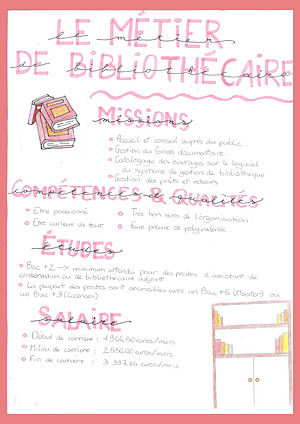 LE MÉTIER
le métier
DE BIBLIOTHÉCAIRE
de bibliothécaire
MISSIONS
missions
Accueil et conseil auprès du public
Gestion du fonds documentaire
Catalogage des ouvrages sur le logiciel
du système de gestion de bibliothèque
Gestion des prêts et retours
COMPÉTENCES & QUALITÉS
compétences & qualités
Etre passionné
Etre curieux de tout
Très bon sens de l'organisation
faire preuve de polyvalence
ÉTUDES
études
Bac +2 → minimum attendu pour des postes d'assistant de
conservation ou de bibliothécaire adjoint
La plupart des postes sont accessibles avec un Bac +5 (Master) ou
un Bac +3 (Licence)
SALAIRE
salaire
Début de carrière : 1 944,50 euros/mois
Milieu de carrière : 2 550,00 euros/mois
Fin de carrière : 3 337,64 euros/mois